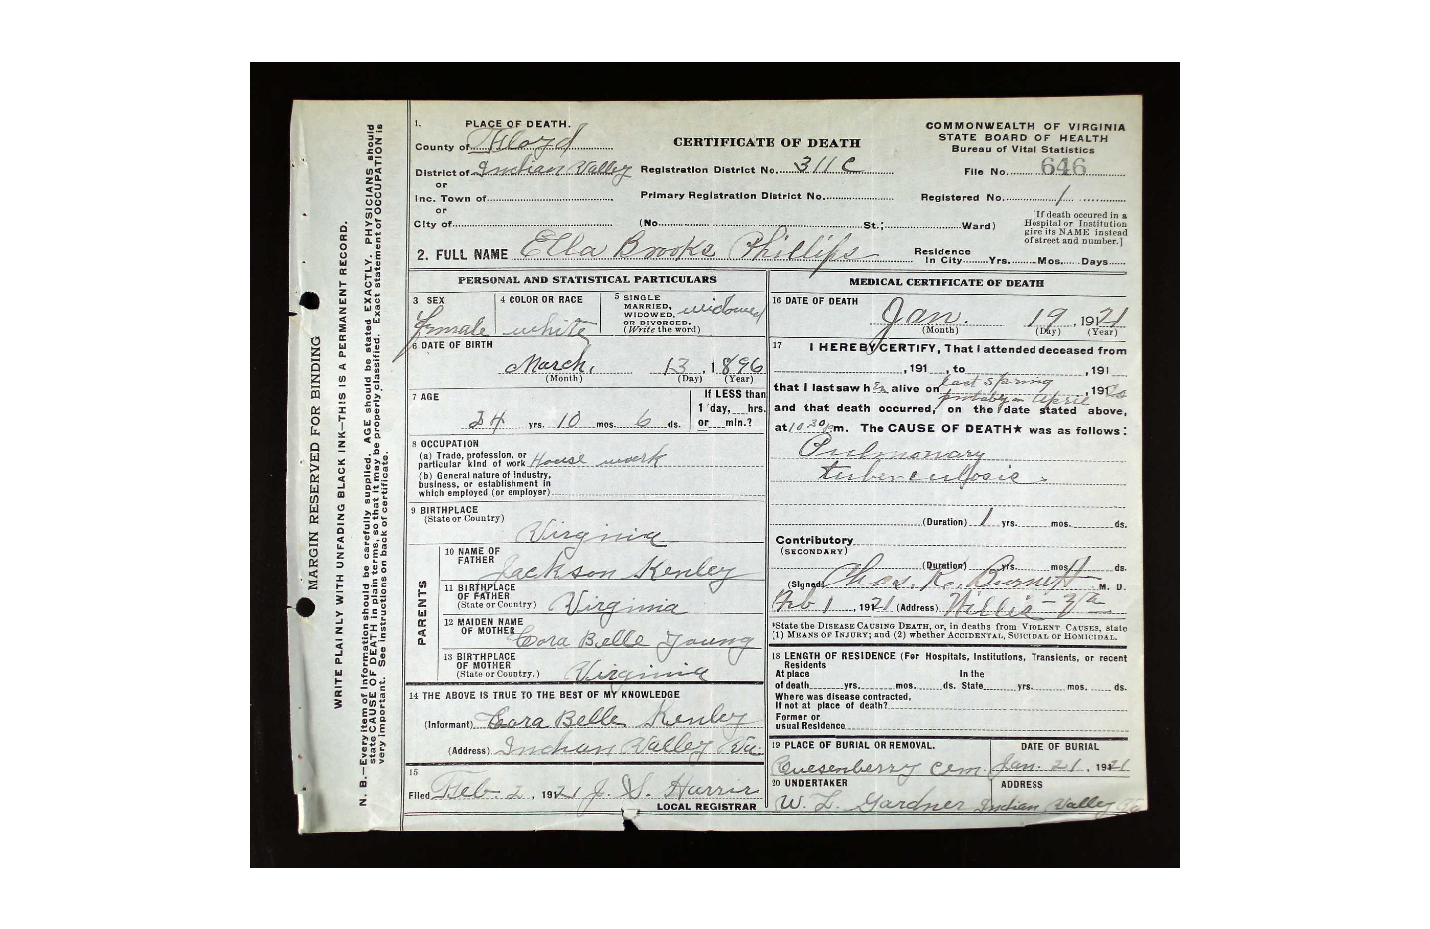 MARGIN RESERVED FOR BINDING
WRITE PLAINLY WITH UNFADING BLACK INK—THIS IS A PERMANENT RECORD.
N. B.—Every item of information should be carefully supplied. AGE should be stated EXACTLY. PHYSICIANS should
state CAUSE OF DEATH in plain terms, so that it may be properly classified. Exact statement of OCCUPATION is
very important. See instructions on back of certificate.
1. PLACE OF DEATH.
County of Floyd
District of Indian Valley
or
Inc. Town of
or
City of
CERTIFICATE OF DEATH
Registration District No. 311 C
Primary Registration District No.
(No. St.; Ward)
COMMONWEALTH OF VIRGINIA
STATE BOARD OF HEALTH
Bureau of Vital Statistics
File No. 646
Registered No. 1
[If death occured in a
Hospital or Institution
give its NAME instead
of street and number.]
2. FULL NAME Ella Brooks Phillips
Residence
In City Yrs. Mos. Days
PERSONAL AND STATISTICAL PARTICULARS
3 SEX
female
4 COLOR OR RACE
white
5 SINGLE
MARRIED,
WIDOWED,
OR DIVORCED.
(Write the word)
widowed
6 DATE OF BIRTH
March, 13, 1896
(Month) (Day) (Year)
7 AGE
24 yrs. 10 mos. 6 ds.
If LESS than
1 day, hrs.
or min.?
8 OCCUPATION
(a) Trade, profession, or
particular kind of work House work
(b) General nature of Industry,
business, or establishment in
which employed (or employer)
9 BIRTHPLACE
(State or Country)
Virginia
PARENTS
10 NAME OF
FATHER
Jackson Kenley
11 BIRTHPLACE
OF FATHER
(State or Country) Virginia
12 MAIDEN NAME
OF MOTHER Cora Belle Young
13 BIRTHPLACE
OF MOTHER
(State or Country.) Virginia
14 THE ABOVE IS TRUE TO THE BEST OF MY KNOWLEDGE
(Informant) Cora Belle Kenley
(Address) Indian Valley Va.
15
Filed Feb. 2, 1921 J. S. Harris
LOCAL REGISTRAR
MEDICAL CERTIFICATE OF DEATH
16 DATE OF DEATH
Jan. 19, 1921
(Month) (Day) (Year)
17 I HEREBY CERTIFY, That I attended deceased from
, 191 , to , 191
that I last saw h er alive on last spring
probably in April, 1920
and that death occurred, on the date stated above,
at 10 30 p m. The CAUSE OF DEATH★ was as follows:
Pulmonary
tuberculosis.
(Duration) 1 yrs. mos. ds.
Contributory
(SECONDARY)
(Duration) yrs. mos. ds.
(Signed) Chas. K. Burnett M. D.
Feb 1, 1921 (Address) Willis - Va
*State the DISEASE CAUSING DEATH, or, in deaths from VIOLENT CAUSES, state
(1) MEANS OF INJURY; and (2) whether ACCIDENTAL, SUICIDAL or HOMICIDAL.
18 LENGTH OF RESIDENCE (For Hospitals, Institutions, Transients, or recent
Residents
At place In the
of death yrs. mos. ds. State yrs. mos. ds.
Where was disease contracted,
If not at place of death?
Former or
usual Residence
19 PLACE OF BURIAL OR REMOVAL.
Quesenberry Cem.
DATE OF BURIAL
Jan. 21, 1921
20 UNDERTAKER
W. L. Gardner
ADDRESS
Indian Valley Va